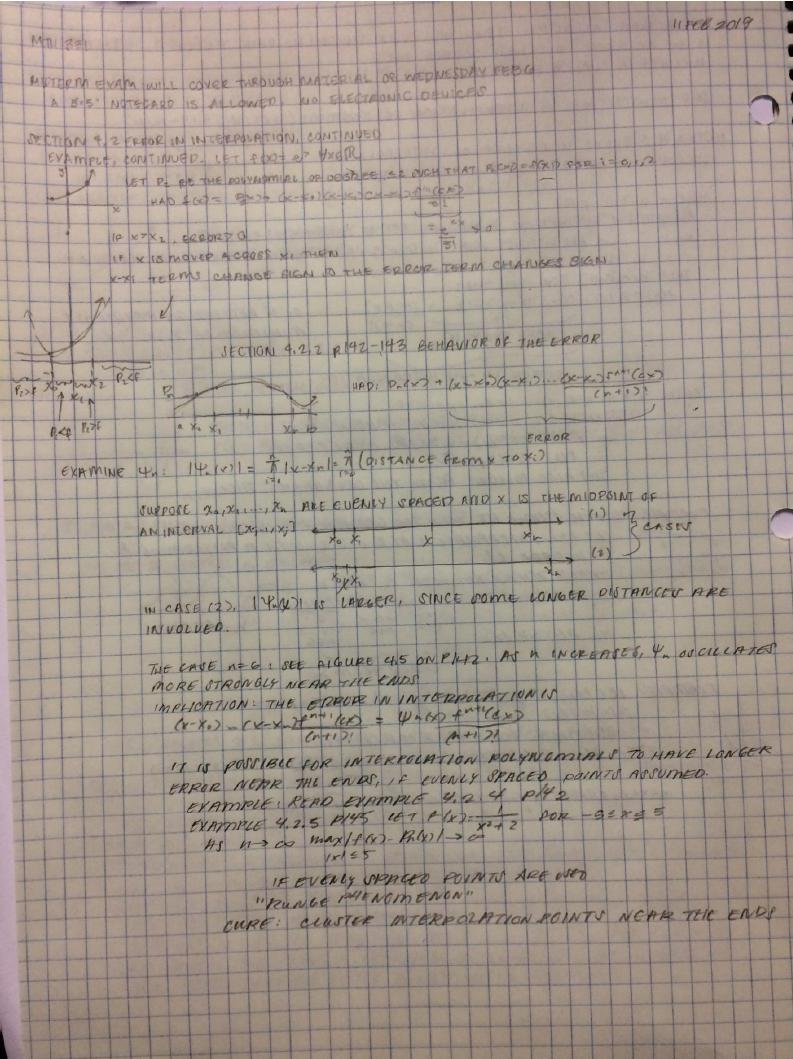 11 FEB 2019
MTH 351
MIDTERM EXAM WILL COVER THROUGH MATERIAL OF WEDNESDAY FEB 6
A 3×5" NOTECARD IS ALLOWED, NO ELECTRONIC DEVICES
SECTION 4.2 ERROR IN INTERPOLATION, CONTINUED
EXAMPLE, CONTINUED. LET f(x) = e^x ∀x∈ℝ
LET P₂ BE THE POLYNOMIAL OF DEGREE ≤2 SUCH THAT P₂(xᵢ)=f(xᵢ) FOR i=0,1,2
HAD f(x) = P₂(x) + (x-x₀)(x-x₁)(x-x₂) f'''(cx)/3!
= e^cx/3! > 0
IF x>x₂, ERROR>0
IF x IS MOVED ACROSS xᵢ THEN
x-xᵢ TERMS CHANGE SIGN SO THE ERROR TERM CHANGES SIGN
x₀ x₁ x₂
P₂>f P₂<f P₂>f P₂<f
SECTION 4.2.2 P142-143 BEHAVIOR OF THE ERROR
HAD: Pn(x) + (x-x₀)(x-x₁)...(x-xn) f^(n+1)(cx)/(n+1)!
ERROR
Pn
a x₀ x₁ xn b
EXAMINE Ψn: |Ψn(x)| = π |x-xn| = π (DISTANCE FROM x TO xi)
SUPPOSE x₀,x₁,...,xn ARE EVENLY SPACED AND x IS THE MIDPOINT OF
AN INTERVAL [xj-1,xj]
x₀ x₁ x xn (1)
x₀ x x₁ xn (2)
CASES
IN CASE (2), |Ψn(x)| IS LARGER, SINCE SOME LONGER DISTANCES ARE
INVOLVED.
THE CASE n=6: SEE FIGURE 4.5 ON P142. AS n INCREASES, Ψn OSCILLATES
MORE STRONGLY NEAR THE ENDS
IMPLICATION: THE ERROR IN INTERPOLATION IS
(x-x₀)...(x-xn) f^(n+1)(cx)/(n+1)! = Ψn(x) f^(n+1)(cx)/(n+1)!
IT IS POSSIBLE FOR INTERPOLATION POLYNOMIALS TO HAVE LONGER
ERROR NEAR THE ENDS, IF EVENLY SPACED POINTS ASSUMED.
EXAMPLE: READ EXAMPLE 4.2.4 P142
EXAMPLE 4.2.5 P145 LET f(x)=1/(x²+2) FOR -5≤x≤5
AS n→∞ max|f(x)-Pn(x)|→∞
|x|≤5
IF EVENLY SPACED POINTS ARE USED
"RUNGE PHENOMENON"
CURE: CLUSTER INTERPOLATION POINTS NEAR THE ENDS